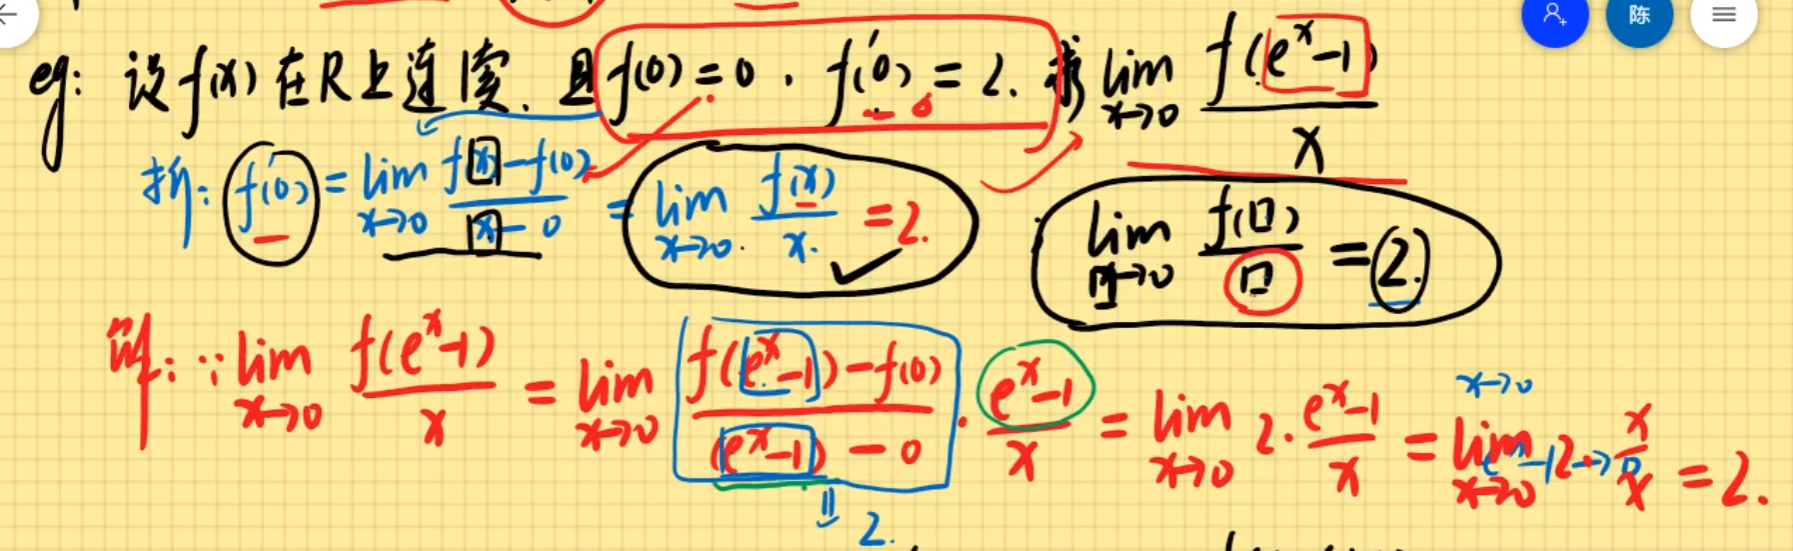 陈
eg: 设f(x)在R上连续.且f(0)=0.f'(0)=2.求 lim x→0 f(e^x-1)/x
析: f'(0) = lim x→0 f(x)-f(0)/x-0 = lim x→0 f(x)/x =2. lim □→0 f(□)/□ =2.
解: ∵ lim x→0 f(e^x-1)/x = lim x→0 f(e^x-1)-f(0)/(e^x-1)-0 · e^x-1/x = lim x→0 2·e^x-1/x = lim x→0 2·x/x =2.
x→0
= 2.